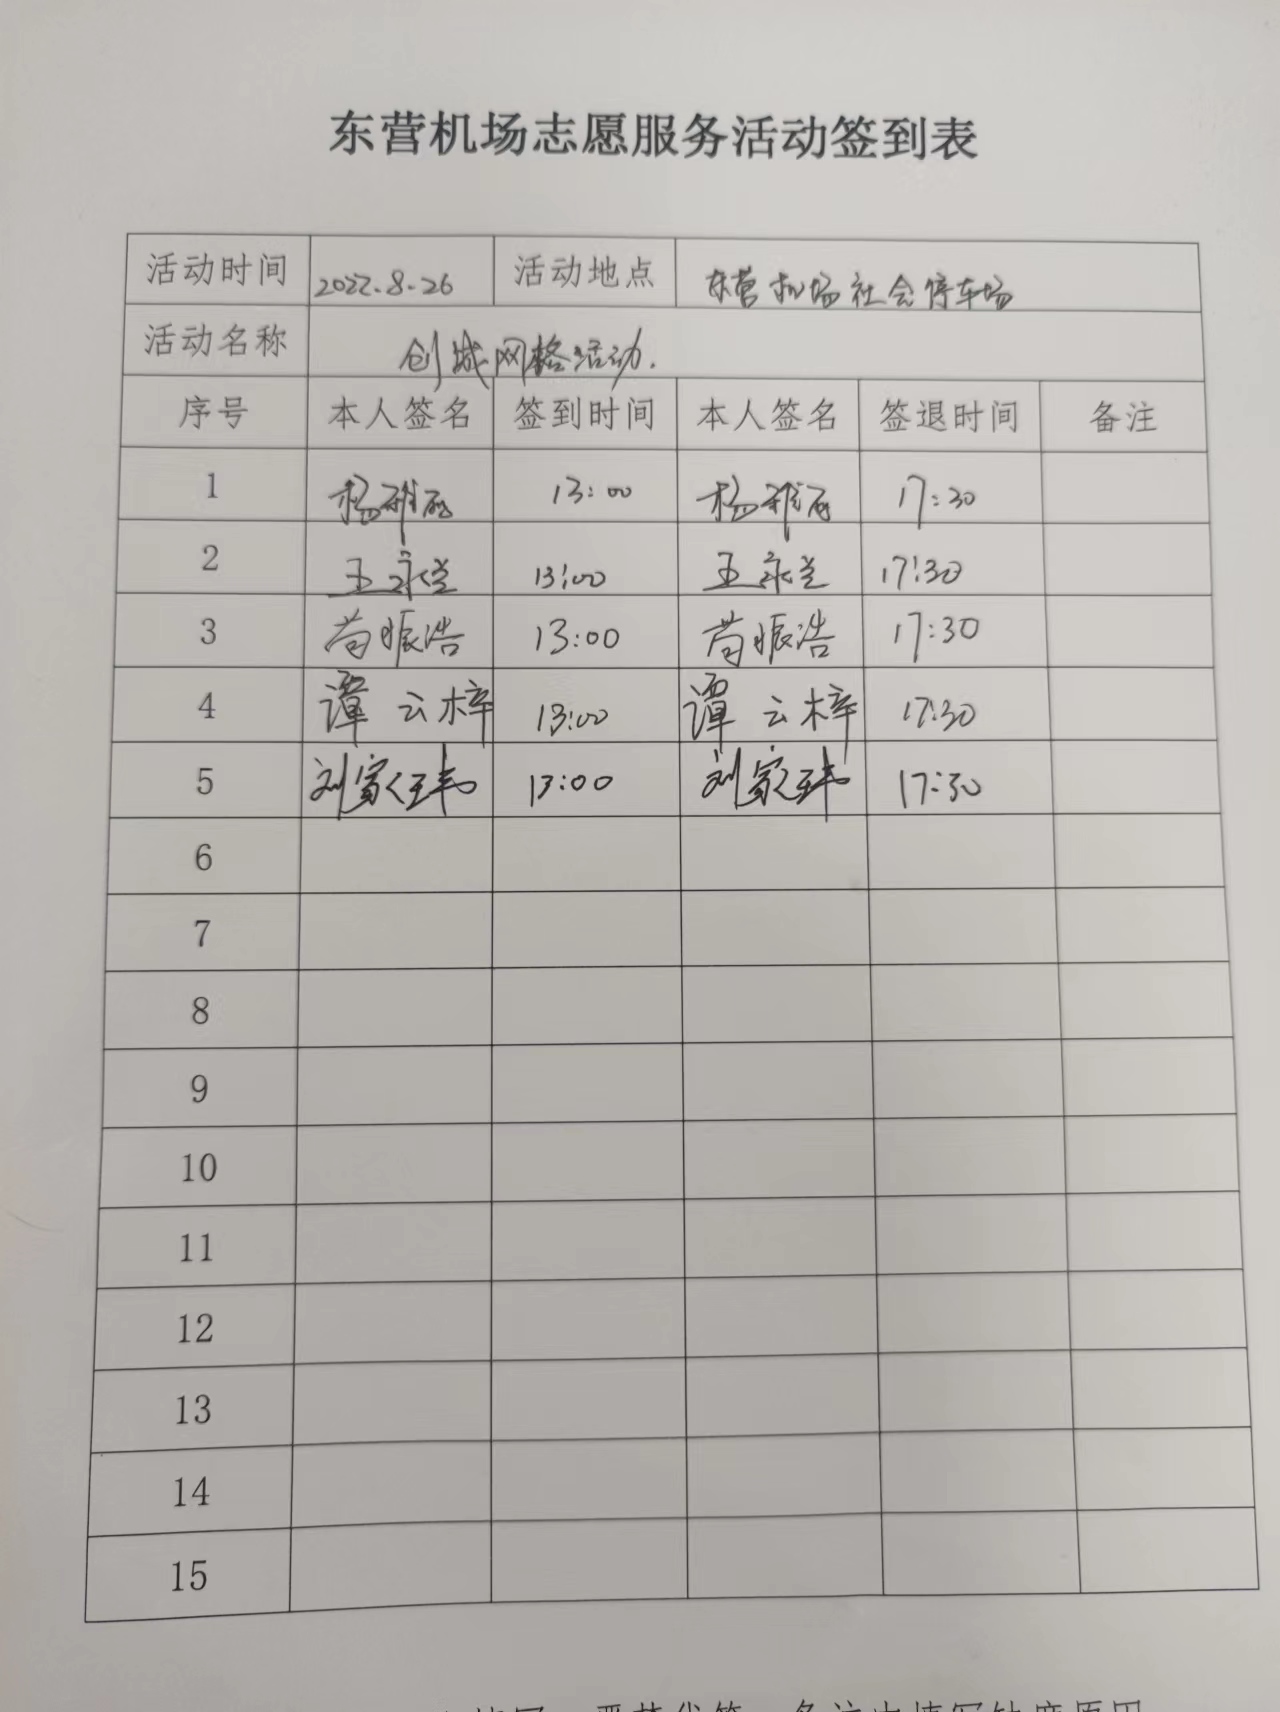 东营机场志愿服务活动签到表
活动时间 2022.8.26 活动地点 东营机场社会停车场
活动名称 创城网格活动.
序号 本人签名 签到时间 本人签名 签退时间 备注
1 杨雅 13:00 杨雅 17:30
2 王永 13:00 王永 17:30
3 苟振浩 13:00 苟振浩 17:30
4 谭云梓 13:00 谭云梓 17:30
5 刘家 13:00 刘家 17:30
6
7
8
9
10
11
12
13
14
15